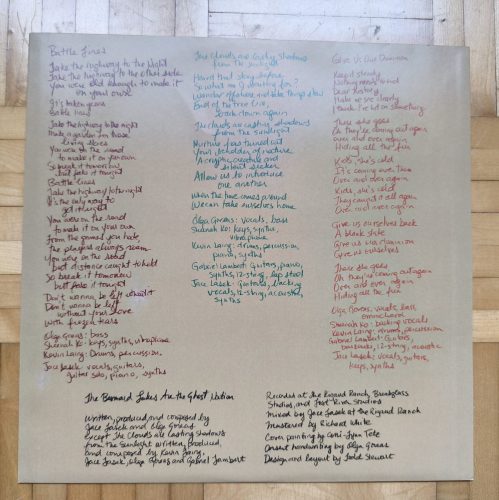 Battle Lines
Take the highway to the night
Take the highway to the other side
You were old enough to make it
on your own
It's taken years
Battle lines
Take the highway to the night
Make a garden for those
living alone
You were on the road
to make it on your own
So break it tomorrow
but fake it tonight
Battle lines
Take the highway to the night
It's the only way to
get it right
You were on the road
to make it on your own
From the games you hate
the players always roam
You were on the road
but distance caught to hold
So break it tomorrow
but fake it tonight
Don't wanna be left
Don't wanna be left
without your love
With frozen tears
Olga Goreas: bass
Sheenah Ko: keys, synths, vibraphone
Kevin Laing: Drums, percussion.
Jace Lasek: vocals, guitars,
guitar solo, piano, synths
The Clouds are Casting Shadows
from the Sunlight
Heard that story before
So what am I waiting for?
Wonder off alone and take things slow
End of the tree line,
back down again
The clouds are casting shadows
from the sunlight
Nurture
beholder of nature
A cryptic creature and
silent seeker
Allow us to introduce
one another
When the time comes around
We can take ourselves home
Olga Goreas: vocals, bass
Sheenah Ko: keys, synths,
vibraphone
Kevin Laing: drums, percussion,
piano, synths
Gabriel Lambert: Guitars, piano,
synths, 12-string, lap steel
Jace Lasek: guitars, backing
vocals, 12-string, acoustic,
synths
Give Us Our Dominion
Keep it steady
Nothing ready to nod
Dear history,
Make us steady
I think I'm hit on something
There she goes
Oh they're coming out again
over and over again
Hiding all the fun
Kids, she's cold
It's coming over them
Over and over again
Kids, she's cold
They cannot tell again
Over and over again
Give us ourselves back
A blank slate
Give us our dominion
Give us ourselves
There she goes
Oh they're coming out again
Over and over again
Hiding all the fun
Olga Goreas: vocals, bass,
omnichord
Sheenah Ko: backing vocals
Kevin Laing: drums, percussion
Gabriel Lambert: Guitars,
bouzouki, 12-string, acoustic
Jace Lasek: vocals, guitars,
keys, synths
The Besnard Lakes Are the Ghost Nation
Written, produced and composed by
Jace Lasek and Olga Goreas
Except The Clouds are Casting Shadows
from the Sunlight written, produced,
and composed by Kevin Laing,
Jace Lasek, Olga Goreas and Gabriel Lambert
Recorded at the Rigaud Ranch, Breakglass
Studios, and Lost River Studios
Mixed by Jace Lasek at the Rigaud Ranch
Mastered by Richard White
Cover painting by Corri-Lynn Tetz
Insert handwriting by Olga Goreas
Design and layout by Todd Stewart